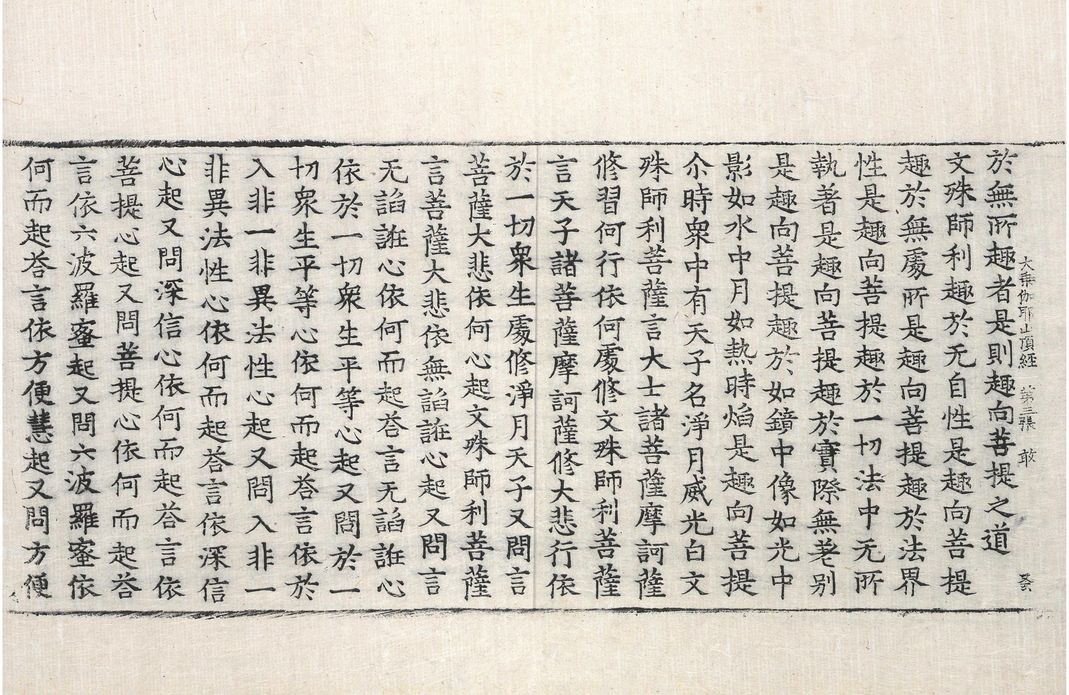 大乘伽耶山頂經 第三張 敢
於無所趣者是則趣向菩提之道
文殊師利趣於无自性是趣向菩提
趣於無處所是趣向菩提趣於法界
性是趣向菩提趣於一切法中无所
執著是趣向菩提趣於實際無差别
是趣向菩提趣於如鏡中像如光中
影如水中月如熱時焰是趣向菩提
尒時衆中有天子名淨月威光白文
殊師利菩薩言大士諸菩薩摩訶薩
修習何行依何處修文殊師利菩薩
言天子諸菩薩摩訶薩修大悲行依
於一切衆生處修淨月天子又問言
菩薩大悲依何心起文殊師利菩薩
言菩薩大悲依無諂誑心起又問言
无諂誑心依何而起荅言无諂誑心
依於一切衆生平等心起又問於一
切衆生平等心依何而起荅言依於
入非一非異法性心起又問入非一
非異法性心依何而起荅言依深信
心起又問深信心依何而起荅言依
菩提心起又問菩提心依何而起荅
言依六波羅蜜起又問六波羅蜜依
何而起荅言依方便慧起又問方便